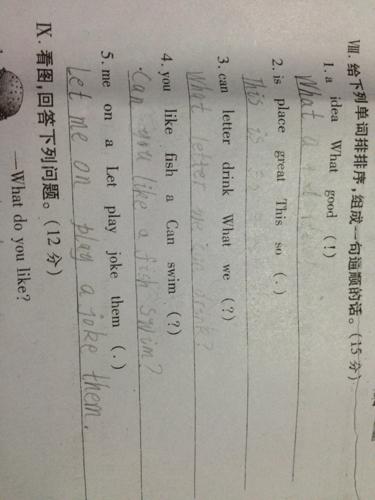 Ⅷ. 给下列单词排排序,组成一句通顺的话。(15分)
1. a idea What good (!)
What a
2. is place great This so (.)
This is
3. can letter drink What we (?)
What letter
4. you like fish a Can swim (?)
Can you like a fish swim?
5. me on a Let play joke them (.)
Let me on play a joke them.
Ⅸ. 看图,回答下列问题。(12分)
—What do you like?